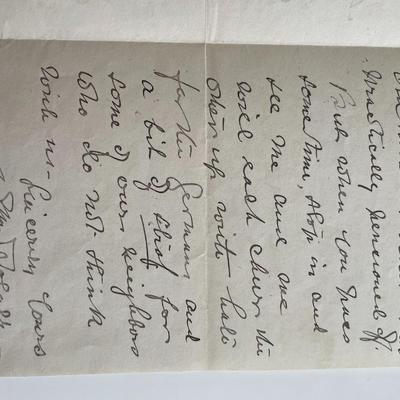 Practically pensioned off.
But when you
sometime, drop in and
see me and we
will each cheer the
other up with hate
for the Germans and
a bit of that for
some of our neighbors
who do not think
with us - Sincerely Yours